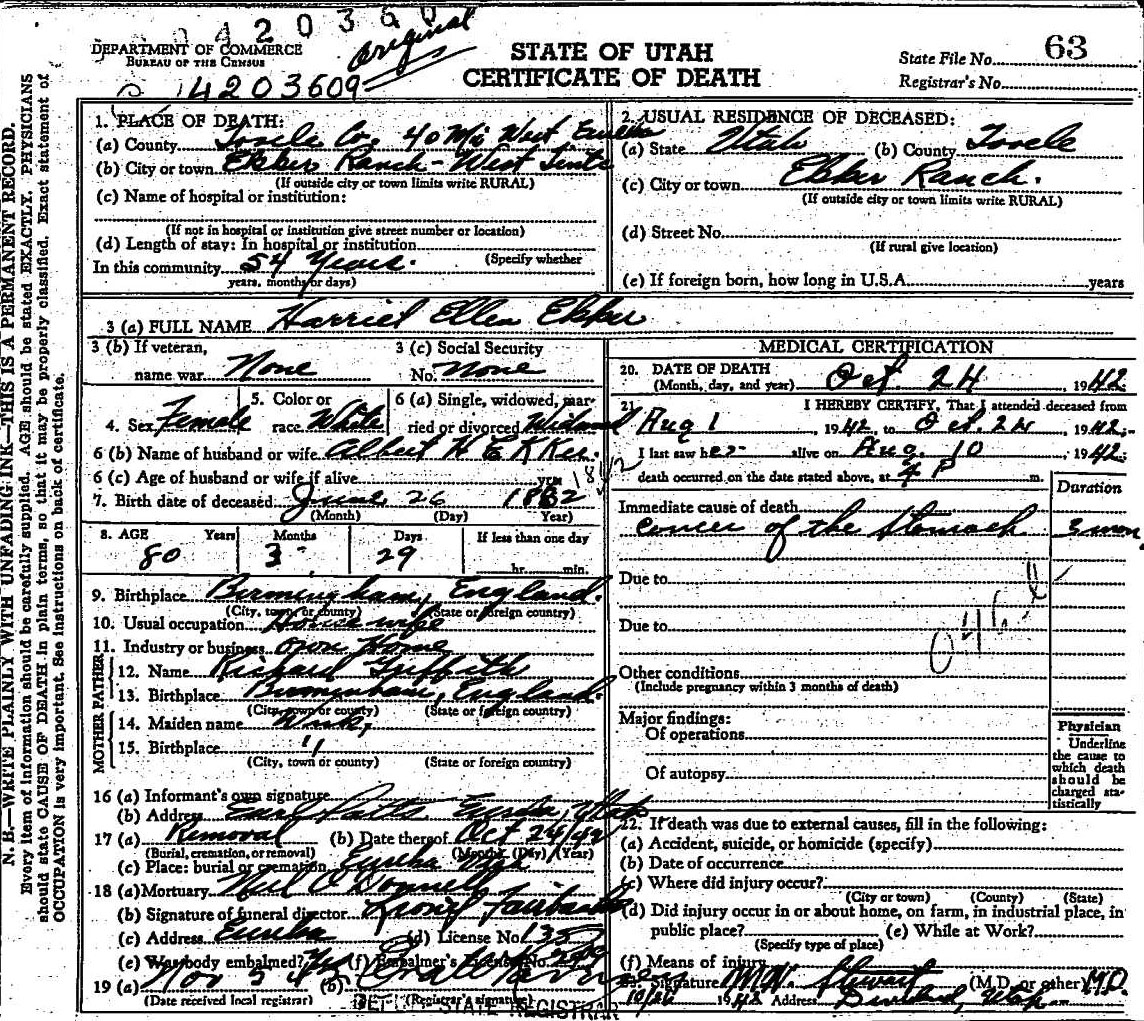 4 2 0 3 6 0
original
DEPARTMENT OF COMMERCE
BUREAU OF THE CENSUS
4203609
STATE OF UTAH
CERTIFICATE OF DEATH
State File No. 63
Registrar's No.
N. B.—WRITE PLAINLY WITH UNFADING INK—THIS IS A PERMANENT RECORD.
Every item of information should be carefully supplied. AGE should be stated EXACTLY. PHYSICIANS
should state CAUSE OF DEATH in plain terms, so that it may be properly classified. Exact statement of
OCCUPATION is very important. See instructions on back of certificate.
1. PLACE OF DEATH:
(a) County Tooele Co, 40 Mi West Eureka
(b) City or town Ekker Ranch - West Tintc
(If outside city or town limits write RURAL)
(c) Name of hospital or institution:
(If not in hospital or institution give street number or location)
(d) Length of stay: In hospital or institution
In this community 54 Years. (Specify whether
years, months or days)
2. USUAL RESIDENCE OF DECEASED:
(a) State Utah (b) County Tooele
(c) City or town Ekker Ranch.
(If outside city or town limits write RURAL)
(d) Street No.
(If rural give location)
(e) If foreign born, how long in U.S.A. years
3 (a) FULL NAME Harriet Ellen Ekker
3 (b) If veteran, 3 (c) Social Security
name war None No. None
4. Sex Female 5. Color or race White 6 (a) Single, widowed, married or divorced Widowed
6 (b) Name of husband or wife Albert H Ekker
6 (c) Age of husband or wife if alive yrs
1862
7. Birth date of deceased June 26 1862
(Month) (Day) Year)
8. AGE Years Months Days If less than one day
80 3 29 hr. min.
9. Birthplace Birmingham, England.
(City, town, or county) (State or foreign country)
10. Usual occupation House wife
11. Industry or business own Home
FATHER
12. Name Richard Griffith
13. Birthplace Birminham, England.
(City, town or county) (State or foreign country)
MOTHER
14. Maiden name
15. Birthplace "
(City, town or county) (State or foreign country)
16 (a) Informant's own signature
(b) Address Eureka, Utah
17 (a) Removal (b) Date thereof Oct 24/42
(Burial, cremation, or removal) (Month) (Day) (Year)
(c) Place: burial or cremation Eureka Utah
18 (a) Mortuary O'Donnell
(b) Signature of funeral director Lionel Fairbanks
(c) Address Eureka (d) License No. 135
(e) Was body embalmed? Yes (f) Embalmer's License No.
19 (a) Nov 5 42 (b)
(Date received local registrar) (Registrar's signature)
DEPUTY STATE REGISTRAR
MEDICAL CERTIFICATION
20. DATE OF DEATH
(Month, day, and year) Oct. 24, 1942
21. I HEREBY CERTIFY, That I attended deceased from
Aug 1, 1942, to Oct. 24, 1942;
I last saw her alive on Aug. 10, 1942;
death occurred on the date stated above, at P m.
Duration
Immediate cause of death
cancer of the stomach 3 mon.
Due to
Due to
046-
Other conditions
(Include pregnancy within 3 months of death)
Major findings:
Of operations
Of autopsy
Physician
Underline
the cause to
which death
should be
charged sta-
tistically
22. If death was due to external causes, fill in the following:
(a) Accident, suicide, or homicide (specify)
(b) Date of occurrence
(c) Where did injury occur?
(City or town) (County) (State)
(d) Did injury occur in or about home, on farm, in industrial place, in
public place? (e) While at Work?
(Specify type of place)
(f) Means of injury
23. Signature Stewart (M.D. or other) M.D.
10/26 1942 Address Dividend, Utah